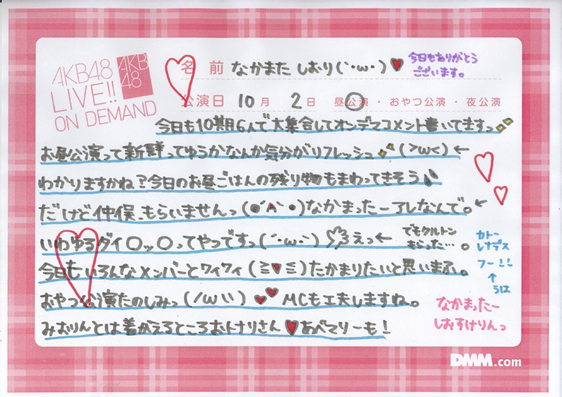 AKB48
LIVE!!
ON DEMAND
AKB
48
名 前 なかまた しおり(´･ω･)♥
今日もありがとう
ございます。
公演日 10月 2日 昼公演・おやつ公演・夜公演
今日も10期6人で大集合してオンデマコメント書いてますっ
お昼公演って新鮮ってゆうかなんか気分がリフレッシュ(>ω<)←
わかりますかね?今日のお昼ごはんの残り物もまわってきそう
だけど仲俣、もらいませんっ(●`A´●)なかまったー了しなんで。←
いわゆるダイ○ッ○ってやつですっ(´･ω･)えっ←
でもクルトン
もらった…。
カトー
レナデス
フー!!
↑
うは
今日もいろんなメンバーとワイワイ(≧▼≦)たかまりたいと思いまふ。
おやつ公演たのしみっ(/ω\\)♥♥MCも工夫しますね。
なかまったー
しおすけりんっ
みおりんとは着がえるところおとなりさん♥あべマリーも!
DMM.com